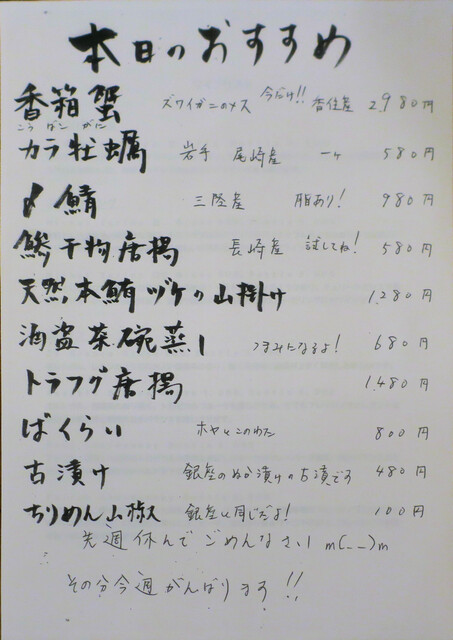 本日のおすすめ
香箱蟹 ズワイガニのメス 今だけ!! 香住産 2,980円
こうばこがに
カラ牡蠣 岩手 尾崎産 一ヶ 580円
〆鯖 三陸産 脂あり! 980円
鯵干物唐揚 長崎産 試してね! 580円
天然本鮪ヅケの山掛け 1,280円
酒盗茶碗蒸し つまみになるよ! 680円
トラフグ唐揚 1,480円
ばくらい ホヤとこのわた 800円
古漬け 銀座のぬか漬けの古漬です 480円
ちりめん山椒 銀座と同じだよ! 100円
先週休んでごめんなさい m(__)m
その分今週がんばります!!